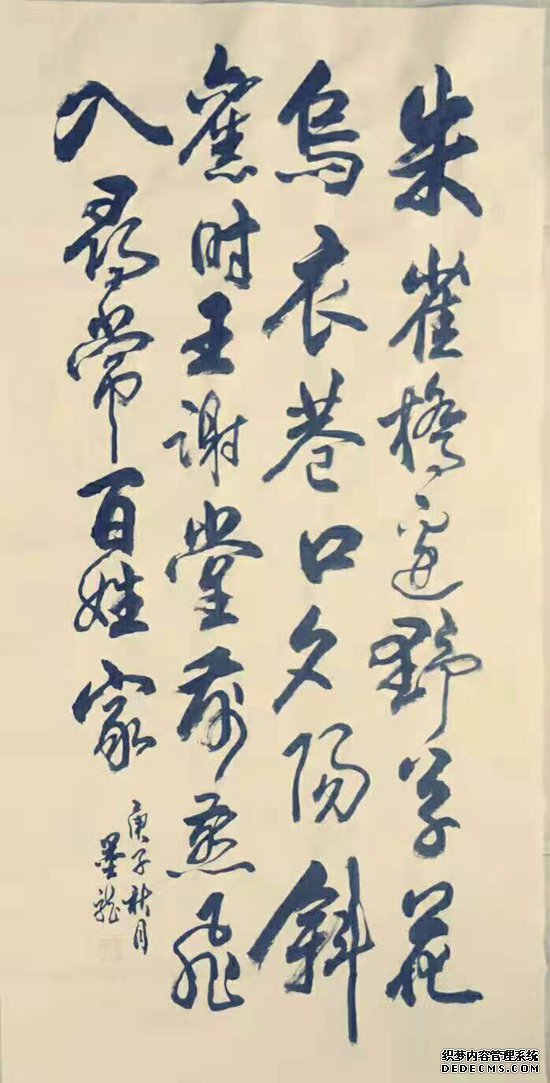 朱雀橋邊野草花
烏衣巷口夕陽斜
舊時王谢堂前燕飛
入尋常百姓家
庚子秋月
墨龍
织梦内容管理系统
DEDECMS.COM